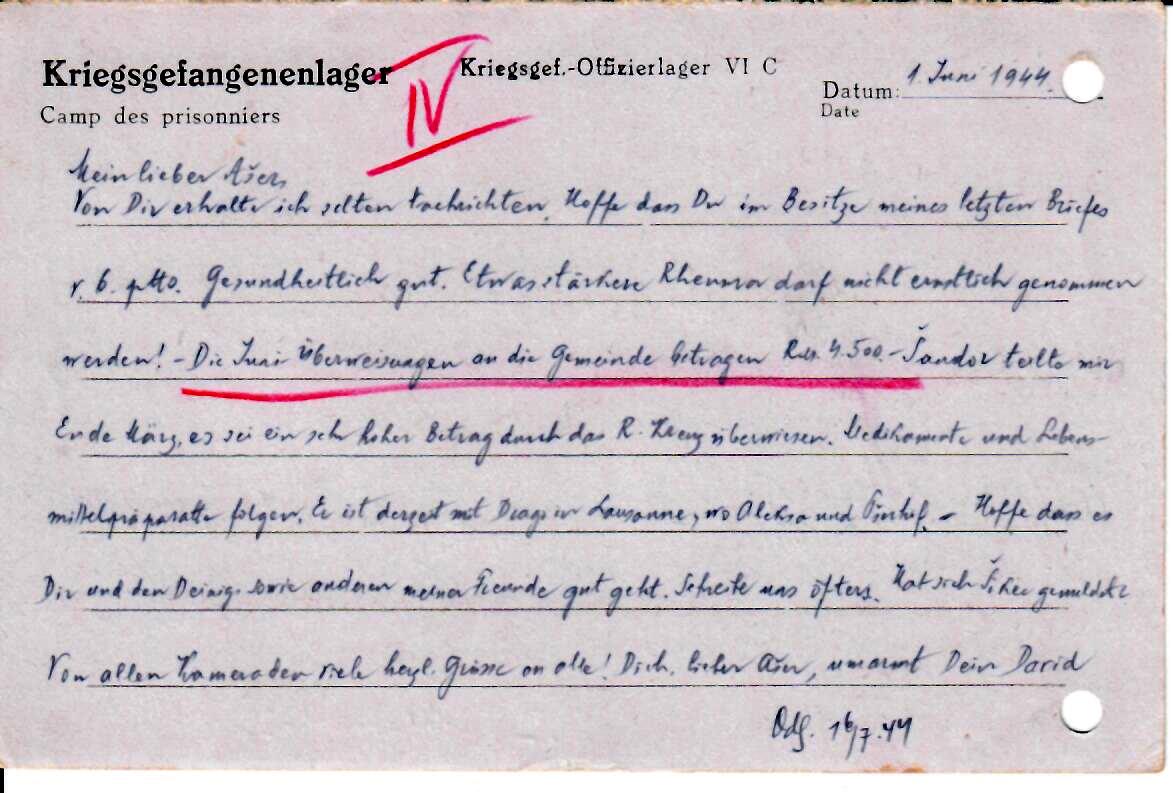 Kriegsgefangenenlager
Camp des prisonniers
IV
Kriegsgef.-Offizierlager VI C
Datum: 1. Juni 1944.
Date
Mein lieber Ašer,
Von Dir erhalte ich selten Nachrichten. Hoffe dass Du im Besitze meines letzten Briefes
v. 6. pto. Gesundheitlich gut. Etwas stärkere Rheuma darf nicht ernstlich genommen
werden! – Die Juni Überweisungen an die Gemeinde betragen 4.500.– Šandor teilte mir
Ende März, es sei ein sehr hoher Betrag durch das R. Kreuz überwiesen. Medikamente und Lebens-
mittelpräparatte folgen. Er ist derzeit mit in Lausanne, wo Aleksa und – Hoffe dass es
Dir und den Deinigen sowie anderen meiner Freunde gut geht. Schreibe uns öfters. Hat sich gemeldet?
Von allen Kameraden viele herzl. Grüsse an alle! Dich, lieber Ašer, umarmt Dein David
Odg. 16/7.44